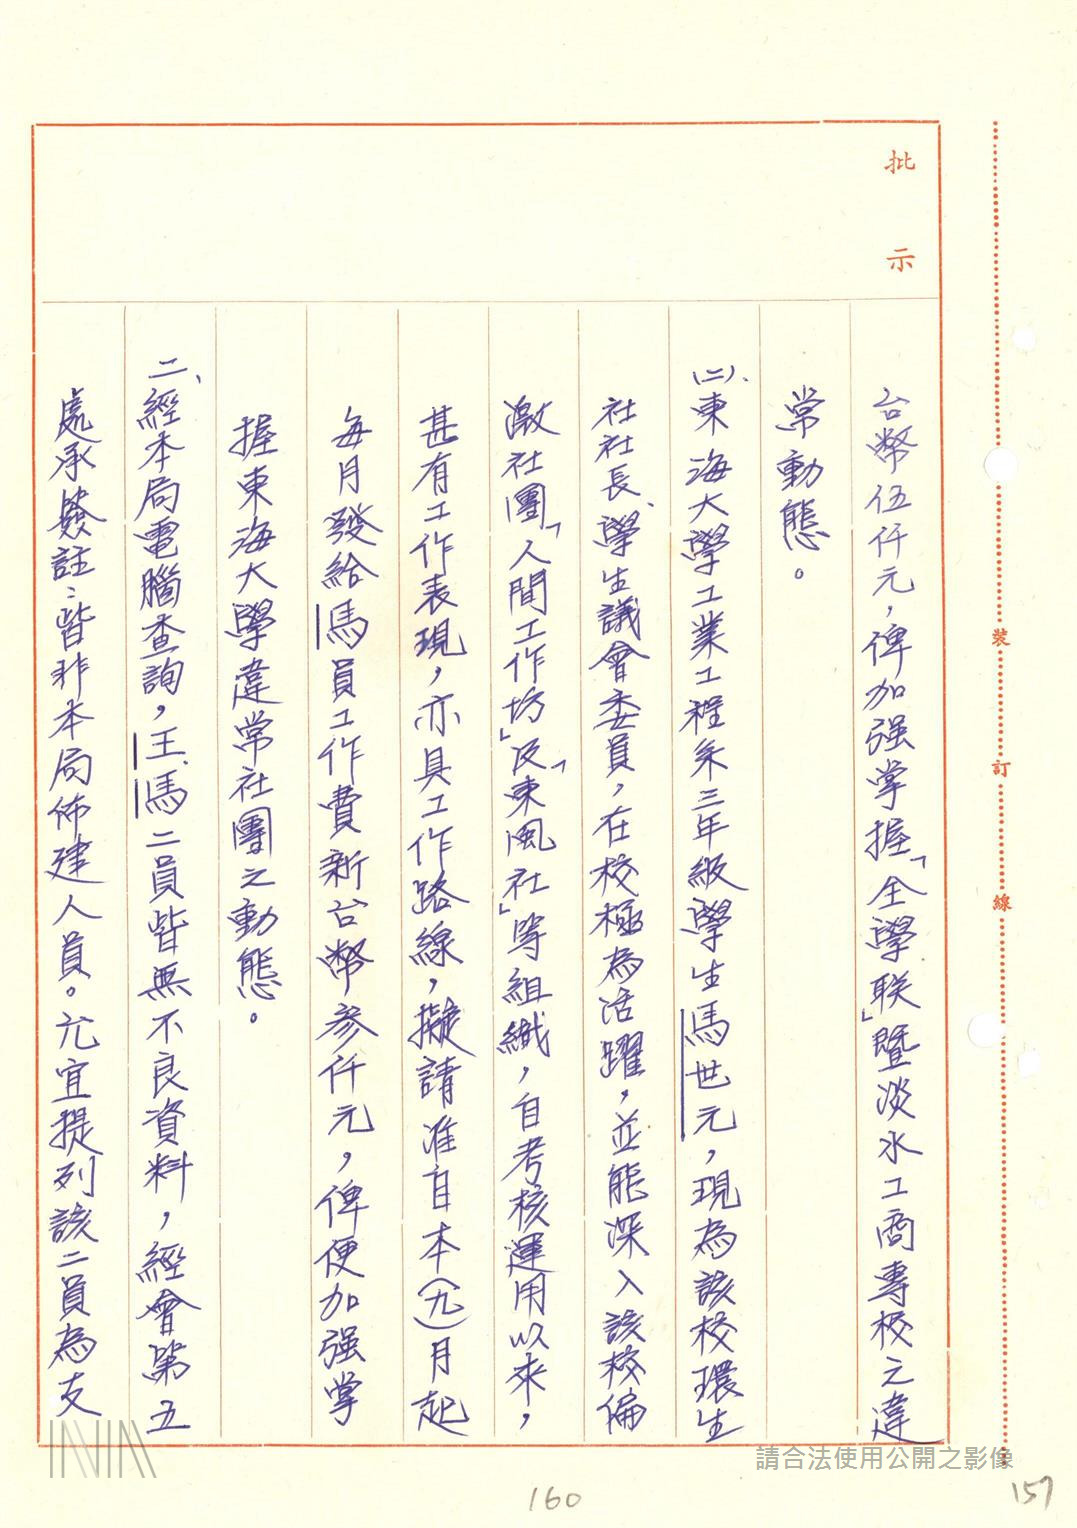 批示
台幣伍仟元，俾加强掌握「全學联」暨淡水工商專校之違
常動態。
(二)、東海大學工業工程系三年級學生馬世元，現為該校環生
社社長、學生議會委員，在校極為活躍，並能深入該校偏
激社團「人間工作坊」及「東風社」等組織，自考核運用以來，
甚有工作表現，亦具工作路線，擬請准自本(九)月起
每月發給馬員工作費新台幣參仟元，俾便加强掌
握東海大學違常社團之動態。
二、經本局電腦查詢，王、馬二員皆無不良資料，經會第五
處承簽註：皆非本局佈建人員。允宜提列該二員為支
裝
訂
線
請合法使用公開之影像
160
157